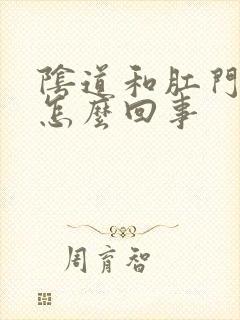 陰道和肛門
怎麼回事
周育智